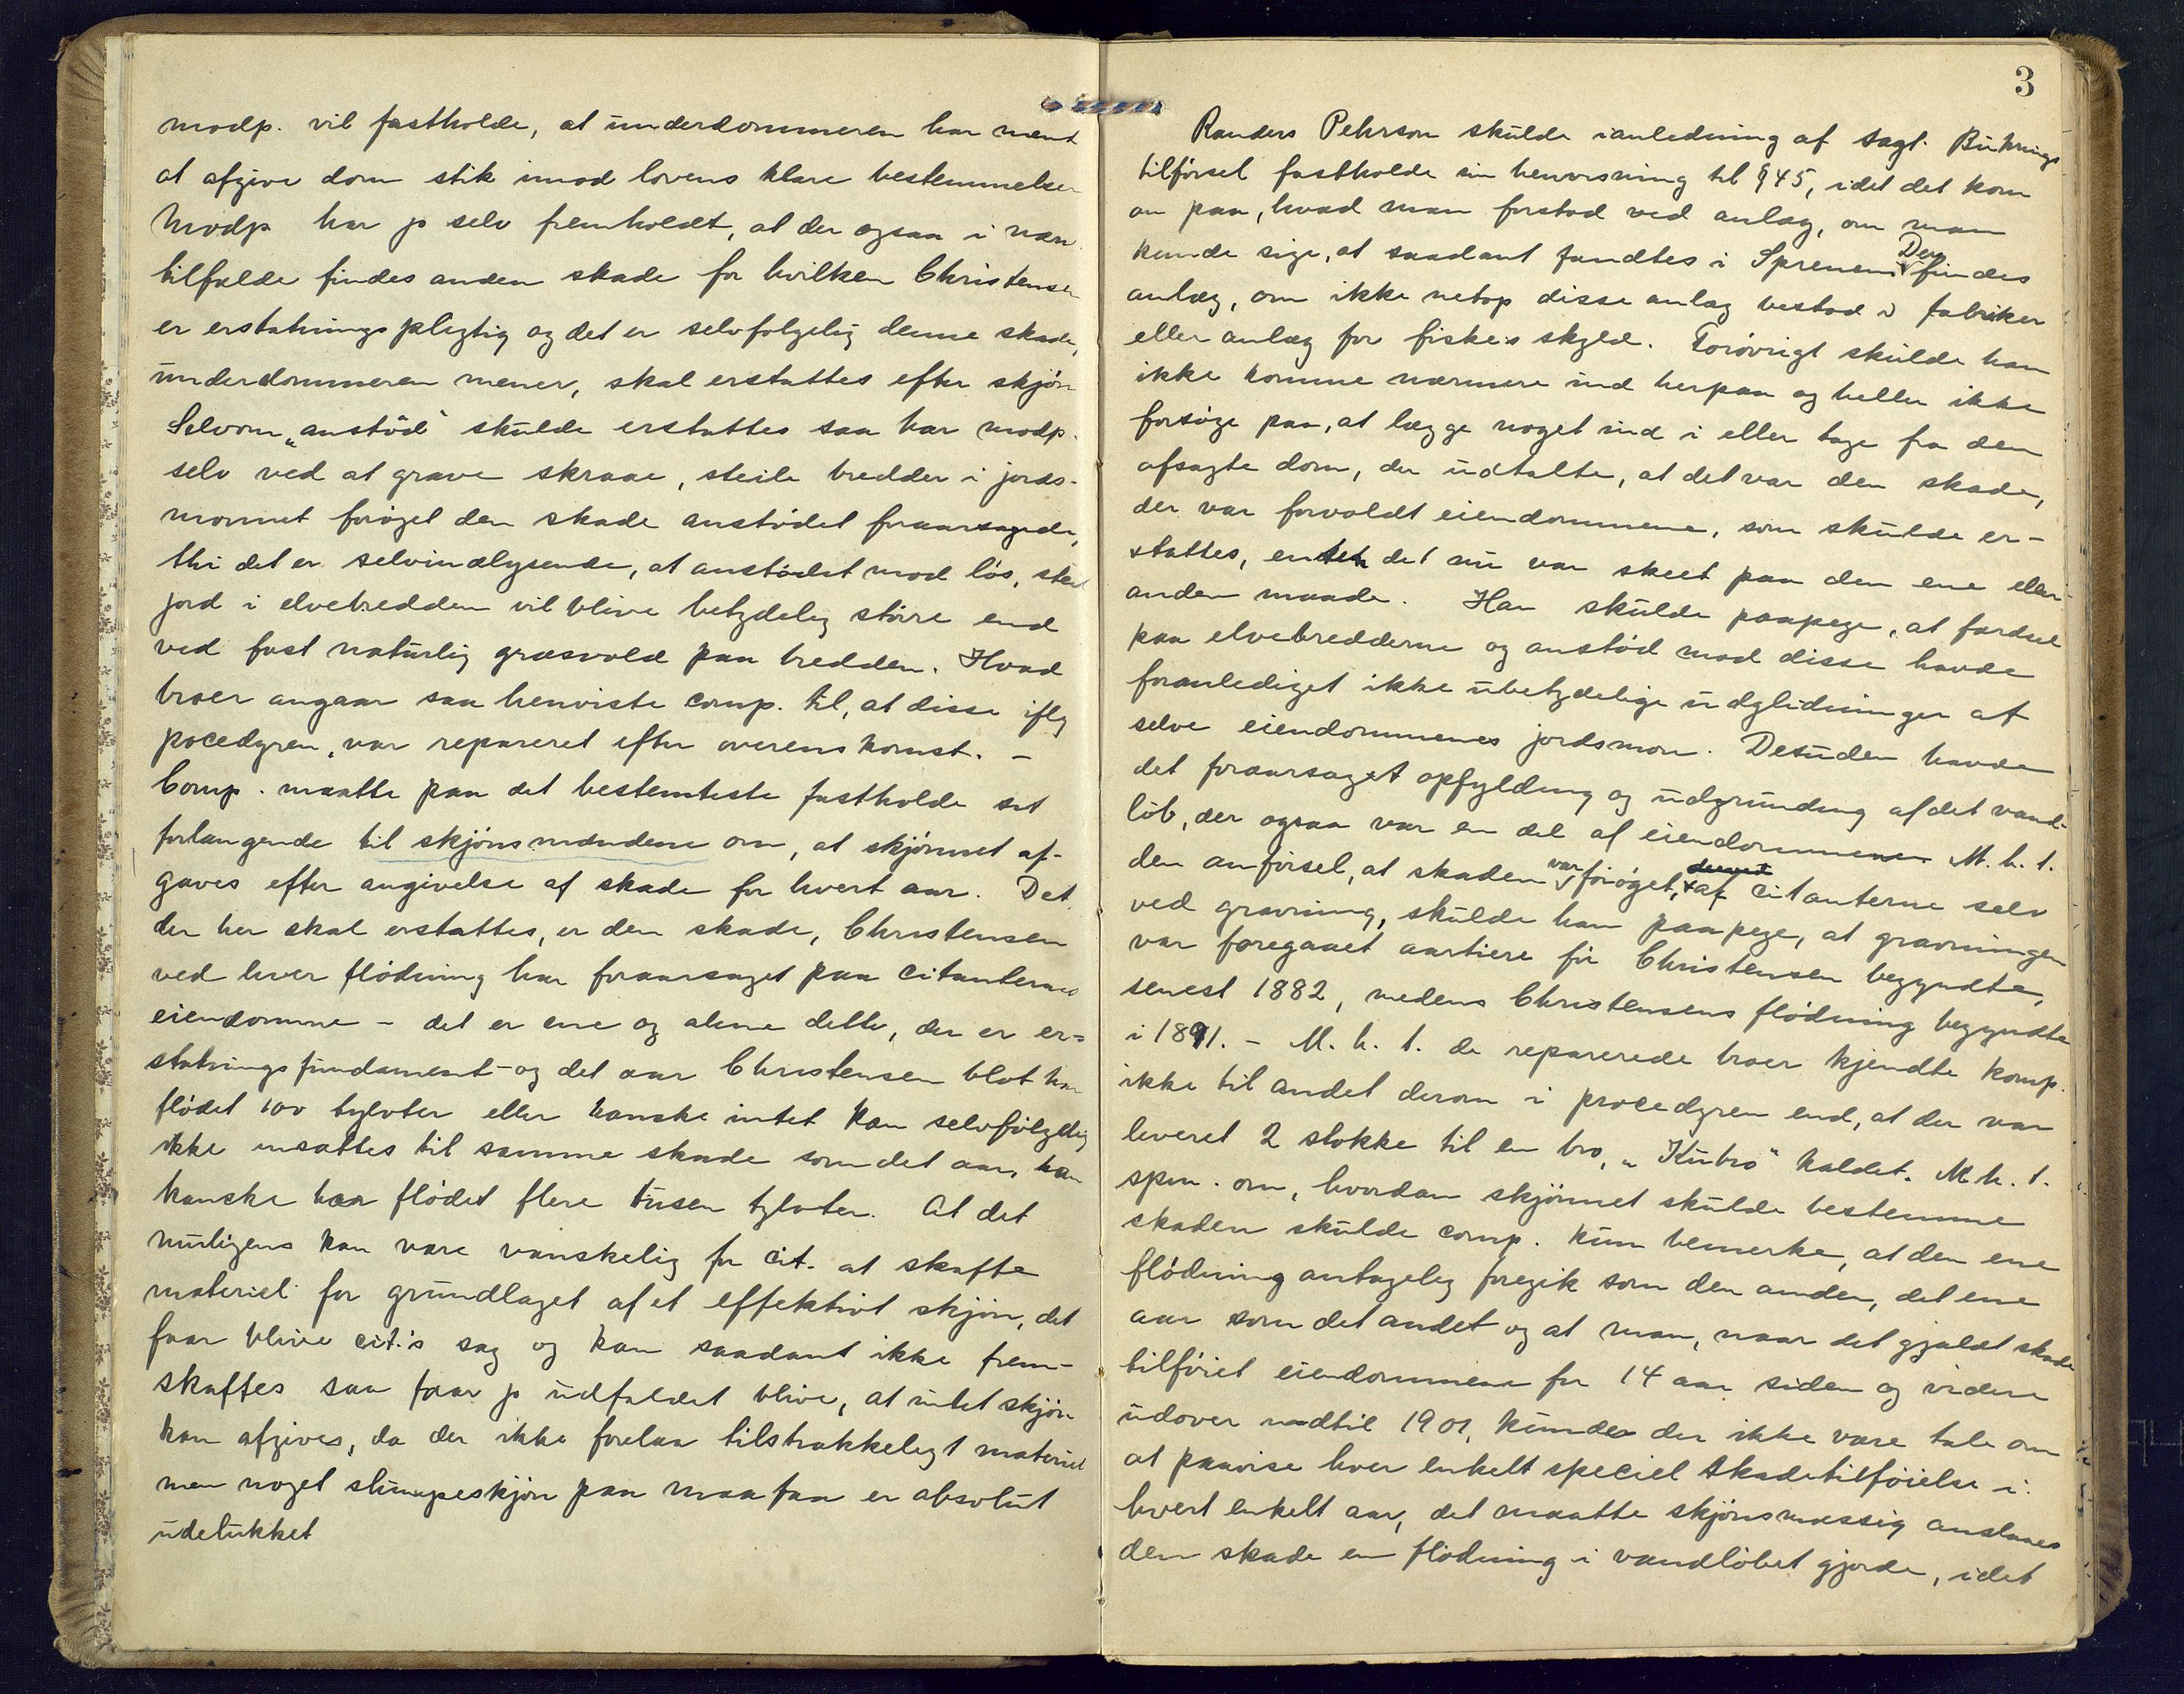 modp. vil fastholde, at underdommeren har ment
at afgive dom stik imod lovens klare bestemmelser
Modp har jo selv fremholdt, at der ogsaa i nær.
tilfælde findes anden skade for hvilken Christensen
er erstatningspligtig og det er selvfølgelig denne skade,
underdommeren mener, skal erstattes efter skjøn
Selvom „anstöd" skulde erstattes saa har modp.
selv ved at grave skraae, steile bredder i jords-
monnet forøget den skade anstödet foraarsagede,
thi det er selvindlysende, at anstödet mod løs, steil
jord i elvebredden vil blive betydelig större end
ved fast naturlig græsvold paa bredden. Hvad
broer angaar saa henviste comp. til, at disse iflg
procedyren, var repareret efter overenskomst. –
Comp. maatte paa det bestemteste fastholde sit
forlangende til skjønsmændene om, at skjønnet af-
gaves efter angivelse af skade for hvert aar. Det
der her skal erstattes, er den skade, Christensen
ved hver flödning har foraarsaget paa citanternes
eiendomme – det er ene og alene dette, der er er=
statningsfundament – og det aar Christensen blot har
flödet 100 tylvter eller kanske intet kan selvfölgelig
ikke ansættes til samme skade som det aar, han
kanske har flödet flere tusen tylvter. At det
muligens kan være vanskelig for cit. at skaffe
materiel for grundlaget af et effektivt skjøn, det
faar blive cit.'s sag og kan saadant ikke frem-
skaffes saa faar jo udfaldet blive, at intet skjøn
kan afgives, da der ikke forelaa tilstrækkeligt materiel
men noget slumpeskjøn paa maafaa er absolut
udelukket
3
Randers Pehrson skulde ianledning af sagf. Bührings
tilförsel fastholde sin henvisning til § 45, idet det kom
an paa, hvad man forstod ved anlæg, om man
kunde sige, at saadant fandtes i Sprenem Der findes
anlæg, om ikke netop disse anlæg bestod i fabriker
eller anlæg for fiskes skyld. Forövrigt skulde han
ikke komme nærmere ind herpaa og heller ikke
forsöge paa, at lægge noget ind i eller tage fra den
afsagte dom, der udtalte, at det var den skade,
der var forvoldt eiendommene, som skulde er-
stattes, enten det nu var skeet paa den ene eller
anden maade. Han skulde paapege, at færdsel
paa elvebredderne og anstöd mod disse havde
foranlediget ikke ubetydelige udglidninger af
selve eiendommenes jordsmon. Desuden havde
det foraarsaget opfyldning og udgrunding af det vand-
löb, der ogsaa var en del af eiendommenen M. h. t.
den anförsel, at skaden var forøget, af citanterne selv
ved gravning, skulde han paapege, at gravningen
var foregaaet aartiere før Christensen begyndte,
senest 1882, medens Christensens flödning begyndte
i 1891. – M. h. t. de reparerede broer kjendte komp.
ikke til andet derom i procedyren end, at der var
leveret 2 stokke til en bro, „Kubro" kaldet. M. h. t.
spm. om, hvordan skjönnet skulde bestemme
skaden skulde comp. kun bemerke, at den ene
flödning antagelig foregik som den anden, det ene
aar som det andet og at man, naar det gjaldt skade
tilföiet eiendommene for 14 aar siden og videre
udover indtil 1901, kunde der ikke være tale om
at paavise hver enkelt speciel skadetilföielse i
hvert enkelt aar, det maatte skjönsmæssig anslaaes
den skade en flödning i vandlöbet gjorde, idet